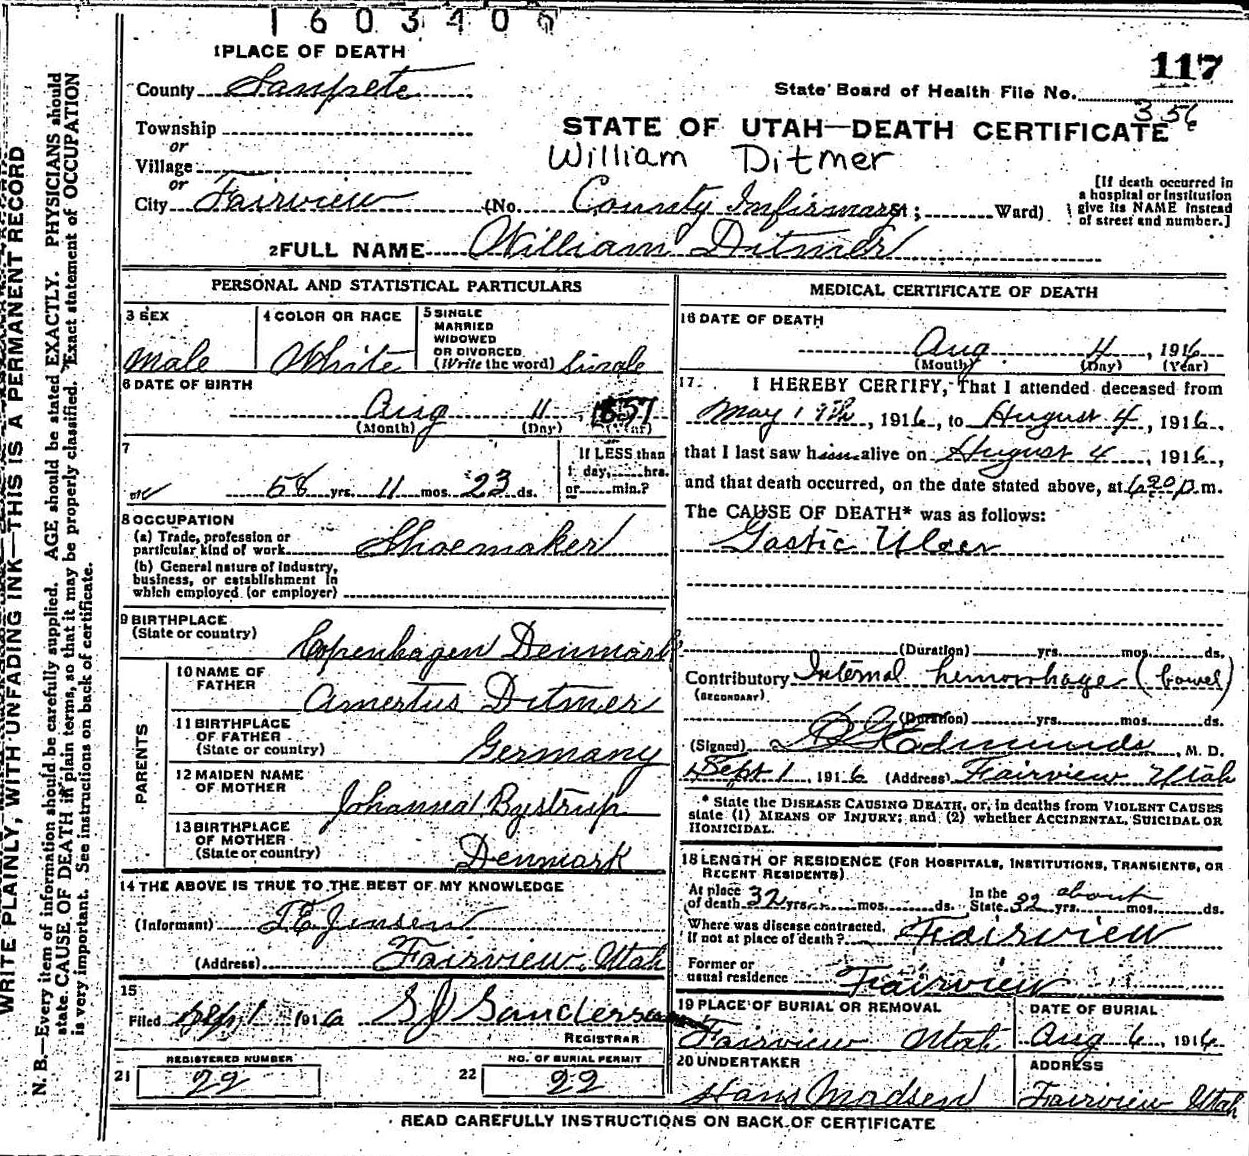 1603406
1 PLACE OF DEATH
117
County Sanpete
State Board of Health File No.
356
Township
or
STATE OF UTAH—DEATH CERTIFICATE
Village
William Ditmer
or
City Fairview (No. County Infirmary St; Ward)
[If death occurred in
a hospital or institution
give its NAME instead
of street and number.]
2 FULL NAME William Ditmer
PERSONAL AND STATISTICAL PARTICULARS
3 SEX
Male
4 COLOR OR RACE
White
5 SINGLE
MARRIED
WIDOWED
OR DIVORCED
(Write the word) Single
6 DATE OF BIRTH
Aug 11 1857
(Month) (Day) (Year)
7
58 yrs. 11 mos. 23 ds.
If LESS than
1 day, hrs.
or min.?
8 OCCUPATION
(a) Trade, profession or
particular kind of work Shoemaker
(b) General nature of industry,
business, or establishment in
which employed (or employer)
9 BIRTHPLACE
(State or country) Copenhagen Denmark
PARENTS
10 NAME OF
FATHER Amertus Ditmer
11 BIRTHPLACE
OF FATHER
(State or country) Germany
12 MAIDEN NAME
OF MOTHER Johanna Bystrup
13 BIRTHPLACE
OF MOTHER
(State or country) Denmark
14 THE ABOVE IS TRUE TO THE BEST OF MY KNOWLEDGE
(Informant) T E Jensen
(Address) Fairview, Utah
15
Filed Sept 1 1916 Sanderson
REGISTRAR
REGISTERED NUMBER
21 22
NO. OF BURIAL PERMIT
22 22
MEDICAL CERTIFICATE OF DEATH
16 DATE OF DEATH
Aug 4, 1916
(Month) (Day) (Year)
17. I HEREBY CERTIFY, That I attended deceased from
May 19th, 1916, to August 4, 1916,
that I last saw him alive on August 4, 1916,
and that death occurred, on the date stated above, at 6 20 p.m.
The CAUSE OF DEATH* was as follows:
Gastic Ulcer
(Duration) yrs. mos. ds.
Contributory Internal hemorrhage (bowel)
(SECONDARY)
(Duration) yrs. mos. ds.
(Signed) Edmunds, M. D.
Sept 1, 1916 (Address) Fairview Utah
* State the DISEASE CAUSING DEATH, or, in deaths from VIOLENT CAUSES
state (1) MEANS OF INJURY; and (2) whether ACCIDENTAL, SUICIDAL OR
HOMICIDAL.
18 LENGTH OF RESIDENCE (FOR HOSPITALS, INSTITUTIONS, TRANSIENTS, OR
RECENT RESIDENTS)
At place
of death 32 yrs. mos. ds.
In the about
State 32 yrs. mos. ds.
Where was disease contracted,
if not at place of death? Fairview
Former or
usual residence Fairview
19 PLACE OF BURIAL OR REMOVAL
Fairview Utah
DATE OF BURIAL
Aug 6, 1916
20 UNDERTAKER
Hans Madsen
ADDRESS
Fairview Utah
READ CAREFULLY INSTRUCTIONS ON BACK OF CERTIFICATE
WRITE PLAINLY, WITH UNFADING INK—THIS IS A PERMANENT RECORD
N. B.—Every item of information should be carefully supplied. AGE should be stated EXACTLY. PHYSICIANS should
state CAUSE OF DEATH in plain terms, so that it may be properly classified. Exact statement of OCCUPATION
is very important. See instructions on back of certificate.